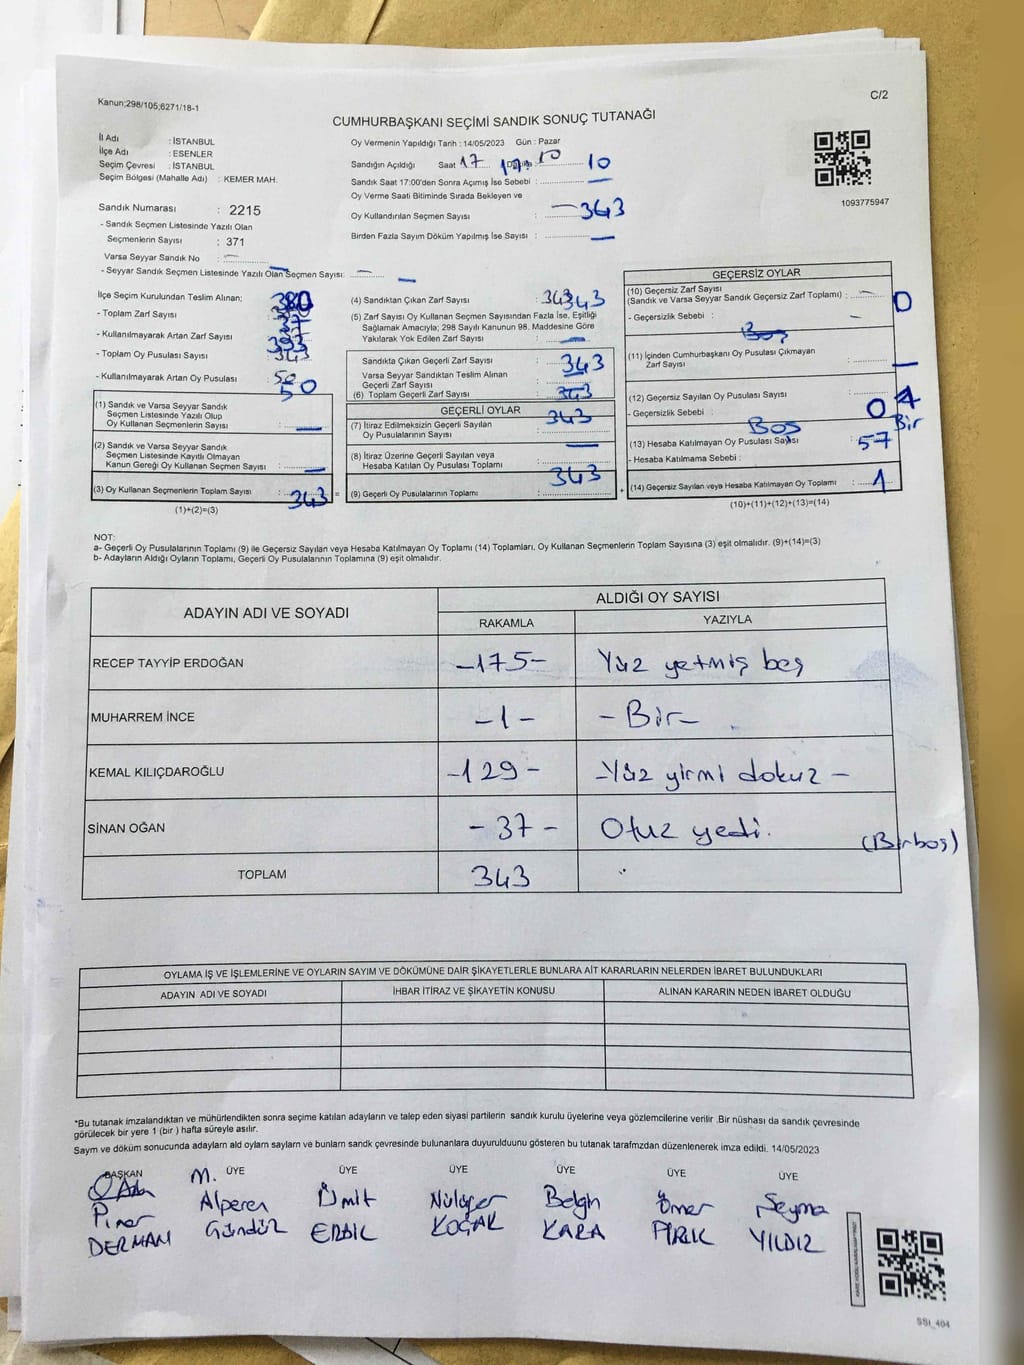 Kanun;298/105;6271/18-1
C/2
CUMHURBAŞKANI SEÇİMİ SANDIK SONUÇ TUTANAĞI
İl Adı : İSTANBUL
İlçe Adı : ESENLER
Seçim Çevresi : İSTANBUL
Seçim Bölgesi (Mahalle Adı) : KEMER MAH.
Sandık Numarası : 2215
- Sandık Seçmen Listesinde Yazılı Olan
Seçmenlerin Sayısı : 371
Varsa Seyyar Sandık No : —
- Seyyar Sandık Seçmen Listesinde Yazılı Olan Seçmen Sayısı: —
Oy Vermenin Yapıldığı Tarih : 14/05/2023 Gün : Pazar
Sandığın Açıldığı Saat 17 10 10
Sandık Saat 17:00'den Sonra Açımış İse Sebebi : —
Oy Verme Saati Bitiminde Sırada Bekleyen ve
Oy Kullandırılan Seçmen Sayısı : —343
Birden Fazla Sayım Döküm Yapılmış İse Sayısı : —
1093775947
İlçe Seçim Kurulundan Teslim Alınan;
- Toplam Zarf Sayısı
- Kullanılmayarak Artan Zarf Sayısı 37
- Toplam Oy Pusulası Sayısı 393 343
- Kullanılmayarak Artan Oy Pusulası : 50 50
(1) Sandık ve Varsa Seyyar Sandık
Seçmen Listesinde Yazılı Olup
Oy Kullanan Seçmenlerin Sayısı : —
(2) Sandık ve Varsa Seyyar Sandık
Seçmen Listesinde Kayıtlı Olmayan
Kanun Gereği Oy Kullanan Seçmen Sayısı : —
(3) Oy Kullanan Seçmenlerin Toplam Sayısı : 343 =
(1)+(2)=(3)
(4) Sandıktan Çıkan Zarf Sayısı : 343 343
(5) Zarf Sayısı Oy Kullanan Seçmen Sayısından Fazla İse, Eşitliği
Sağlamak Amacıyla; 298 Sayılı Kanunun 98. Maddesine Göre
Yakılarak Yok Edilen Zarf Sayısı : —
Sandıkta Çıkan Geçerli Zarf Sayısı : 343
Varsa Seyyar Sandıktan Teslim Alınan
Geçerli Zarf Sayısı
(6) Toplam Geçerli Zarf Sayısı : 343
GEÇERLİ OYLAR
(7) İtiraz Edilmeksizin Geçerli Sayılan 343
Oy Pusulalarının Sayısı
(8) İtiraz Üzerine Geçerli Sayılan veya —
Hesaba Katılan Oy Pusulası Toplamı
(9) Geçerli Oy Pusulalarının Toplamı : 343 +
GEÇERSİZ OYLAR
(10) Geçersiz Zarf Sayısı
(Sandık ve Varsa Seyyar Sandık Geçersiz Zarf Toplamı) : — 0
- Geçersizlik Sebebi : —
Boş
(11) İçinden Cumhurbaşkanı Oy Pusulası Çıkmayan
Zarf Sayısı : —
(12) Geçersiz Sayılan Oy Pusulası Sayısı
- Geçersizlik Sebebi : 0 Bir
Boş
(13) Hesaba Katılmayan Oy Pusulası Sayısı : 57
- Hesaba Katılmama Sebebi :
(14) Geçersiz Sayılan veya Hesaba Katılmayan Oy Toplamı : 1
(10)+(11)+(12)+(13)=(14)
NOT:
a- Geçerli Oy Pusulalarının Toplamı (9) ile Geçersiz Sayılan veya Hesaba Katılmayan Oy Toplamı (14) Toplamları, Oy Kullanan Seçmenlerin Toplam Sayısına (3) eşit olmalıdır. (9)+(14)=(3)
b- Adayların Aldığı Oyların Toplamı, Geçerli Oy Pusulalarının Toplamına (9) eşit olmalıdır.
ADAYIN ADI VE SOYADI
ALDIĞI OY SAYISI
RAKAMLA YAZIYLA
RECEP TAYYİP ERDOĞAN -175- Yüz yetmiş beş
MUHARREM İNCE -1- -Bir-
KEMAL KILIÇDAROĞLU -129- -Yüz yirmi dokuz-
SİNAN OĞAN -37- Otuz yedi.
(Bir boş)
TOPLAM 343
OYLAMA İŞ VE İŞLEMLERİNE VE OYLARIN SAYIM VE DÖKÜMÜNE DAİR ŞİKAYETLERLE BUNLARA AİT KARARLARIN NELERDEN İBARET BULUNDUKLARI
ADAYIN ADI VE SOYADI İHBAR İTİRAZ VE ŞİKAYETİN KONUSU ALINAN KARARIN NEDEN İBARET OLDUĞU
*Bu tutanak imzalandıktan ve mühürlendikten sonra seçime katılan adayların ve talep eden siyasi partilerin sandık kurulu üyelerine veya gözlemcilerine verilir .Bir nüshası da sandık çevresinde
görülecek bir yere 1 (bir ) hafta süreyle asılır.
Sayım ve döküm sonucunda adayların ald oyların sayların ve bunların sandk çevresinde bulunanlara duyurulduunu gösteren bu tutanak tarafmzdan düzenlenerek imza edildi. 14/05/2023
BAŞKAN ÜYE ÜYE ÜYE ÜYE ÜYE ÜYE
Pınar M. Alperen Ümit Nilüfer Belgin Ömer Şeyma
DERMAN Gündüz ERBİL KOÇAK KARA PIRIK YILDIZ
SSI_404